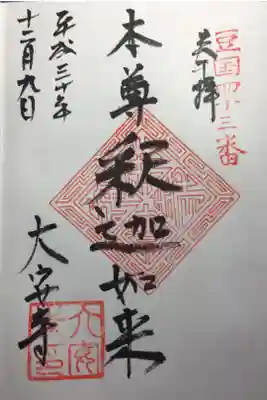 豆国四十三番
奉拝
本尊釈迦如来
大安寺
平成三十年
十二月九日